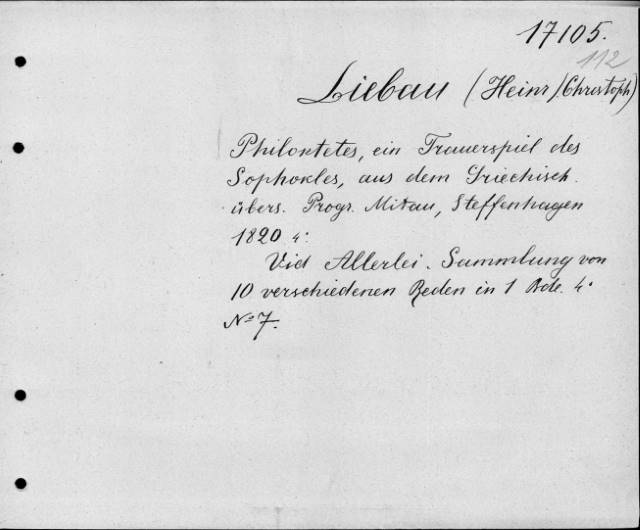 17105.
112
Liebau (Heinr./Christoph)
Philoktetes, ein Trauerspiel des
Sophokles, aus dem Griechisch.
übers. Progr. Mitau, Steffenhagen
1820 4°
Vid Allerlei. Sammlung von
10 verschiedenen Reden in 1 Bde. 4°
No 7.